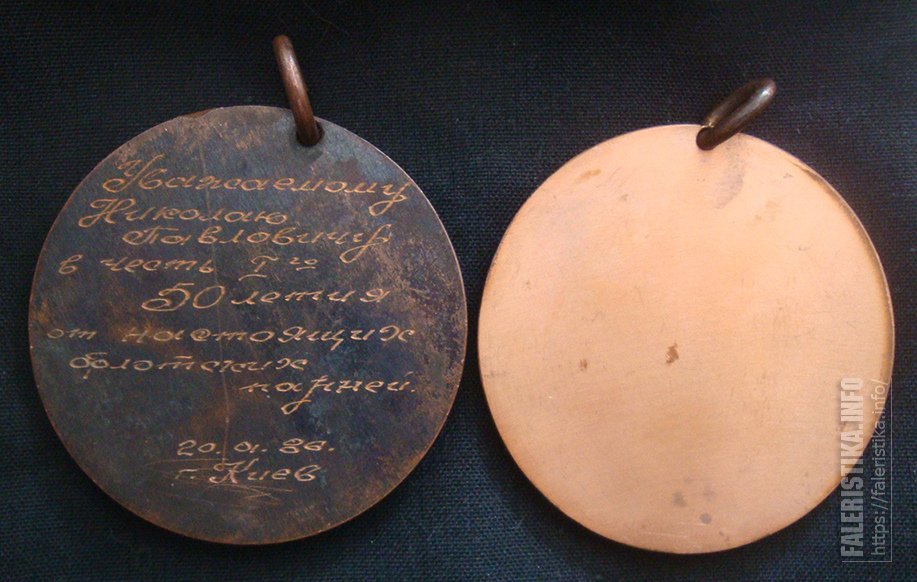 Уважаемому
Николаю
Павловичу
в честь I го
50 летия
от настоящих
флотских
парней.
20.01.86.
г. Киев
FALERISTIKA.INFO
https://faleristika.info/